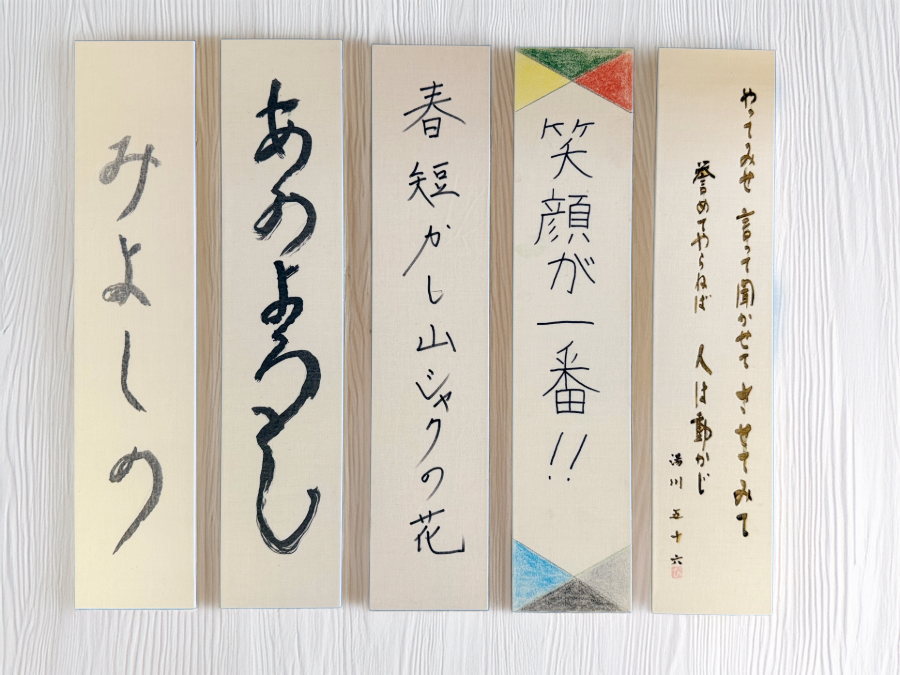 やってみせ 言って聞かせて させてみて
誉めてやらねば 人は動かじ
川 五十六
笑顔が一番!!
春短かし山ジャクの花
あのよろし
みよしの